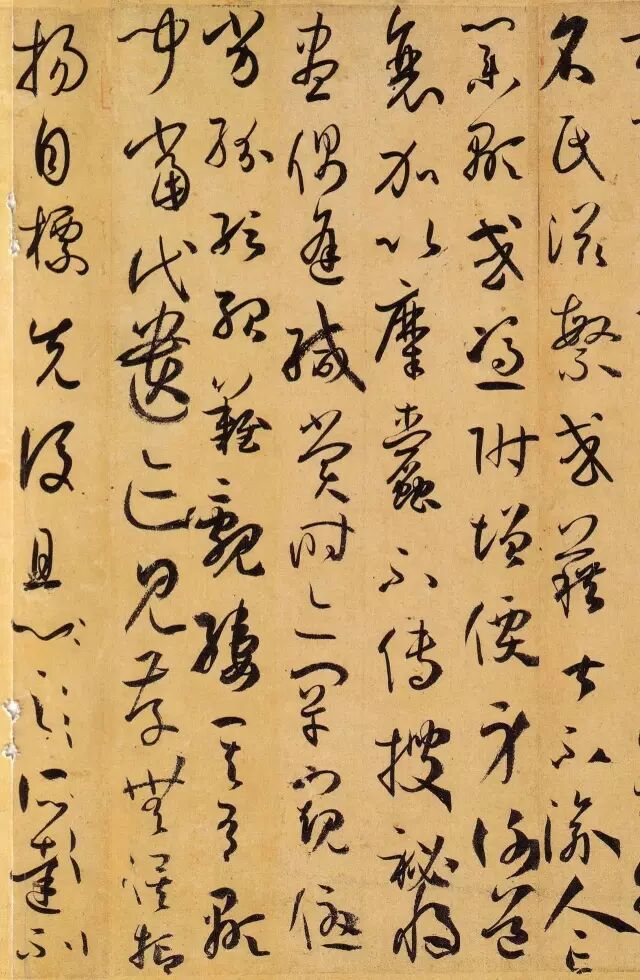 名氏滋繁或藉甚不渝人亡
業顯或憑附增價身謝道
衰加以糜蠹不傳搜秘將
盡偶逢緘賞時亦罕窺優
劣紛紜殆難覼縷其有顯
聞當代遺迹見存無俟抑
揚自標先後且心之所達不